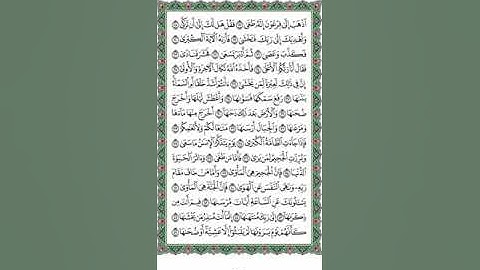 ٱذۡهَبۡ إِلَىٰ فِرۡعَوۡنَ إِنَّهُۥ طَغَىٰ فَقُلۡ هَل لَّكَ إِلَىٰٓ أَن تَزَكَّىٰ
وَأَهۡدِيَكَ إِلَىٰ رَبِّكَ فَتَخۡشَىٰ فَأَرَىٰهُ ٱلۡأٓيَةَ ٱلۡكُبۡرَىٰ
فَكَذَّبَ وَعَصَىٰ ثُمَّ أَدۡبَرَ يَسۡعَىٰ فَحَشَرَ فَنَادَىٰ
فَقَالَ أَنَا۠ رَبُّكُمُ ٱلۡأَعۡلَىٰ فَأَخَذَهُ ٱللَّهُ نَكَالَ ٱلۡأٓخِرَةِ وَٱلۡأُولَىٰٓ
إِنَّ فِي ذَٰلِكَ لَعِبۡرَةٗ لِّمَن يَخۡشَىٰٓ ءَأَنتُمۡ أَشَدُّ خَلۡقًا أَمِ ٱلسَّمَآءُۚ
بَنَىٰهَا رَفَعَ سَمۡكَهَا فَسَوَّىٰهَا وَأَغۡطَشَ لَيۡلَهَا وَأَخۡرَجَ
ضُحَىٰهَا وَٱلۡأَرۡضَ بَعۡدَ ذَٰلِكَ دَحَىٰهَآ أَخۡرَجَ مِنۡهَا مَآءَهَا
وَمَرۡعَىٰهَا وَٱلۡجِبَالَ أَرۡسَىٰهَا مَتَٰعٗا لَّكُمۡ وَلِأَنۡعَٰمِكُمۡ
فَإِذَا جَآءَتِ ٱلطَّآمَّةُ ٱلۡكُبۡرَىٰ يَوۡمَ يَتَذَكَّرُ ٱلۡإِنسَٰنُ مَا سَعَىٰ
وَبُرِّزَتِ ٱلۡجَحِيمُ لِمَن يَرَىٰ فَأَمَّا مَن طَغَىٰ وَءَاثَرَ ٱلۡحَيَوٰةَ
ٱلدُّنۡيَا فَإِنَّ ٱلۡجَحِيمَ هِيَ ٱلۡمَأۡوَىٰ وَأَمَّا مَنۡ خَافَ مَقَامَ
رَبِّهِۦ وَنَهَى ٱلنَّفۡسَ عَنِ ٱلۡهَوَىٰ فَإِنَّ ٱلۡجَنَّةَ هِيَ ٱلۡمَأۡوَىٰ
يَسۡـَٔلُونَكَ عَنِ ٱلسَّاعَةِ أَيَّانَ مُرۡسَىٰهَا فِيمَ أَنتَ مِن
ذِكۡرَىٰهَآ إِلَىٰ رَبِّكَ مُنتَهَىٰهَآ إِنَّمَآ أَنتَ مُنذِرُ مَن يَخۡشَىٰهَا
كَأَنَّهُمۡ يَوۡمَ يَرَوۡنَهَا لَمۡ يَلۡبَثُوٓاْ إِلَّا عَشِيَّةً أَوۡ ضُحَىٰهَا